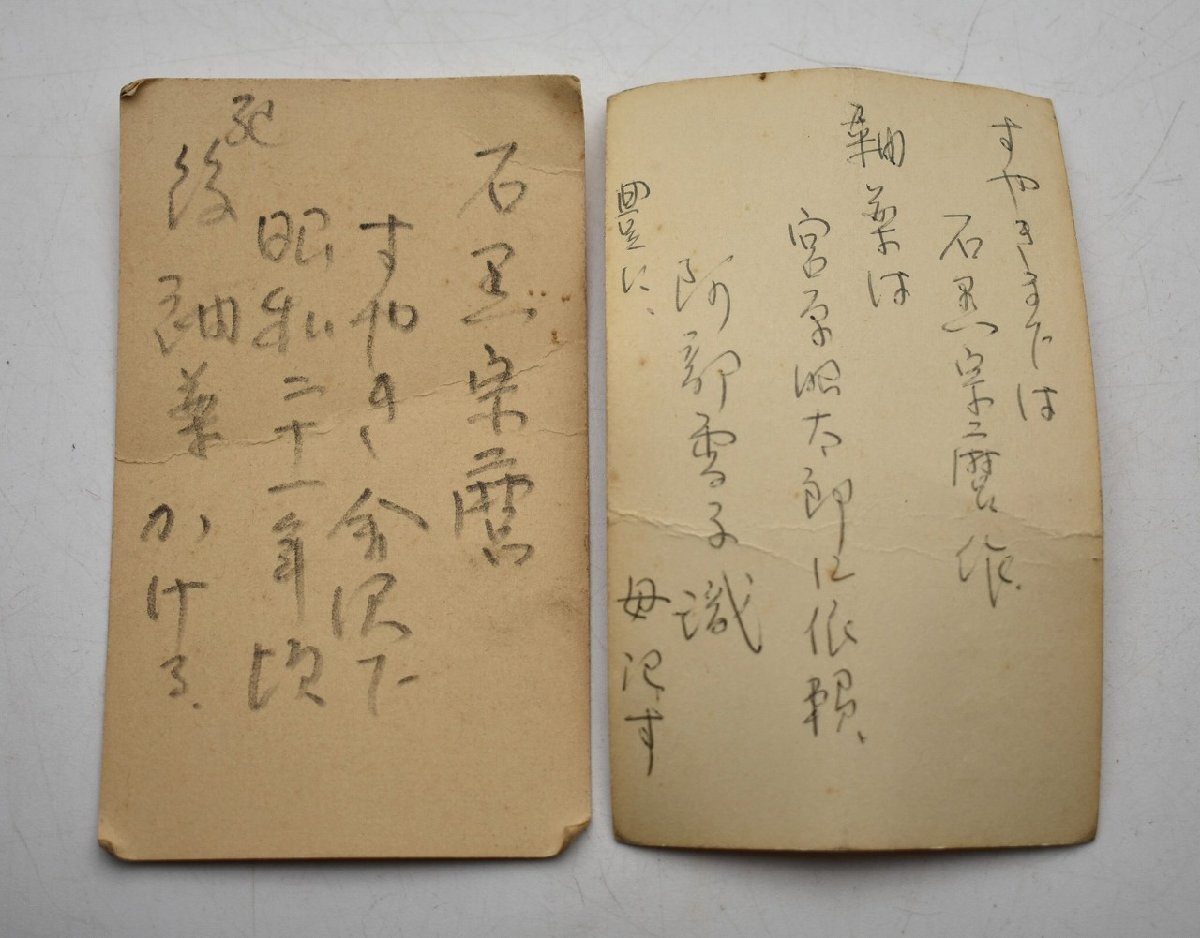 石黒宗麿
すやき
昭和二十一年頃
記
後釉薬かける.
すやきまでは
石黒宗麿作、
釉薬は
宮原昭太郎に依頼、
阿部雪子識
豊に、母記す